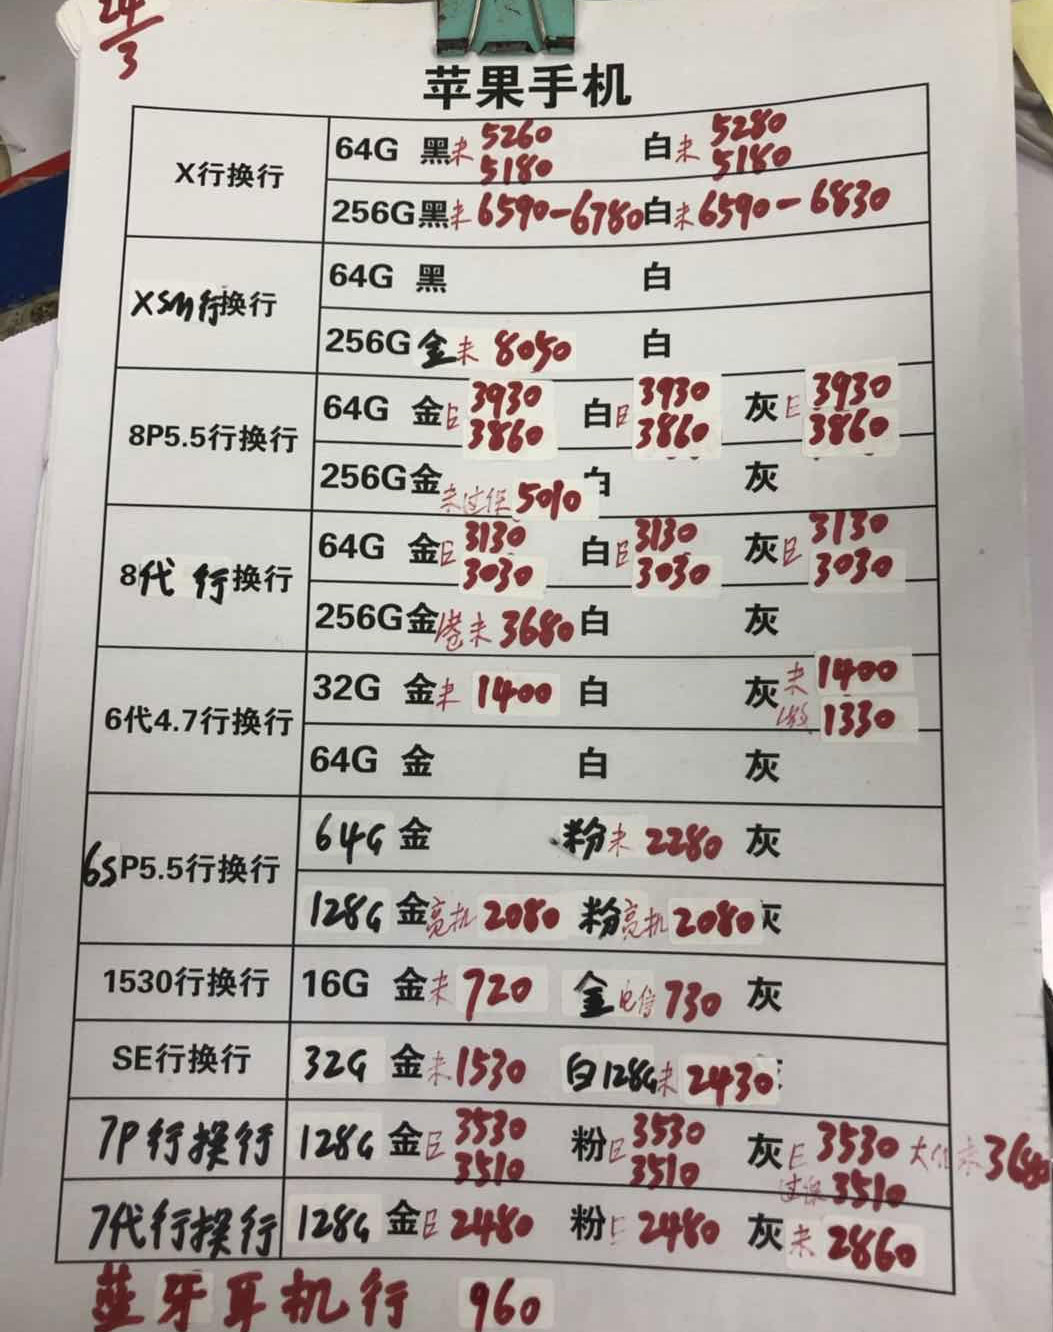 24
3
苹果手机
X行换行
64G 黑未 5260 白未 5280
5180 5180
256G黑未 6590-6780 白未 6590-6830
XSM行换行
64G 黑 白
256G 金未 8050 白
8P5.5行换行
64G 金 3930 白 3930 灰 3930
3860 3860 3860
256G金未过保 5010 白 灰
8代 行换行
64G 金 3130 白 3130 灰 3130
3030 3030 3030
256G金港未 3680 白 灰
6代4.7行换行
32G 金未 1400 白 灰未 1400
1330
64G 金 白 灰
6SP5.5行换行
64G 金 粉未 2280 灰
128G 金亮机 2080 粉亮机 2080 灰
1530行换行
16G 金未 720 金电信 730 灰
SE行换行
32G 金未 1530 白128G未 2430
7P行换行
128G 金 3530 粉 3530 灰 3530 未 3680
3510 3510 过保 3510
7代行换行
128G 金 2480 粉 2480 灰未 2860
蓝牙耳机行 960